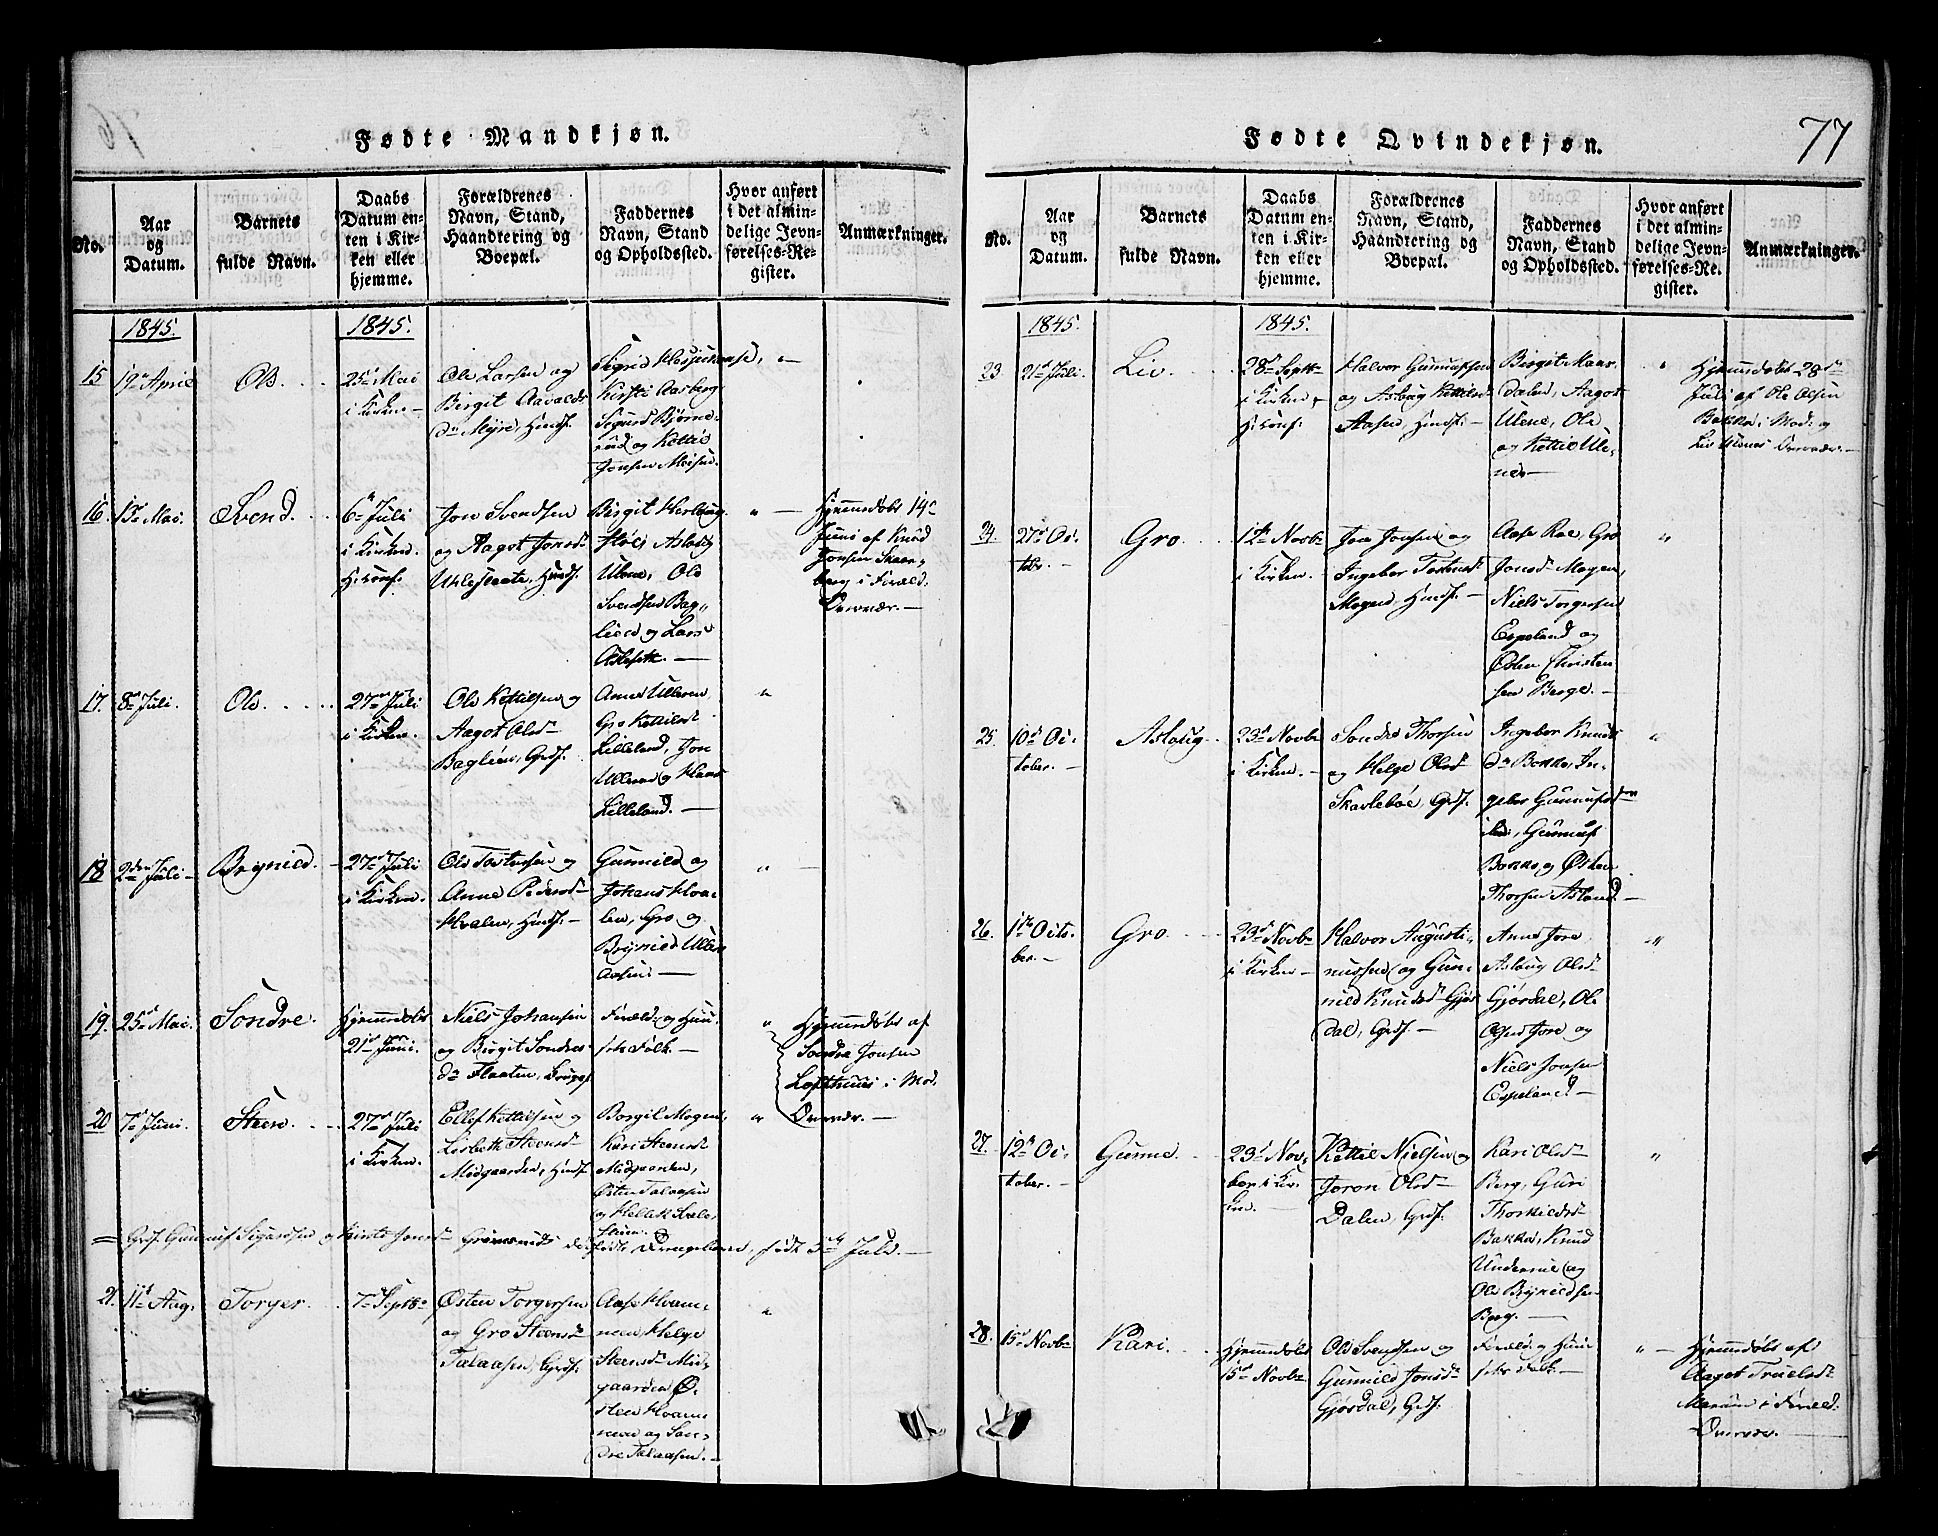 Fødte Mandkjøn.
No.
Aar
og
Datum.
Barnets
fulde Navn.
Daabs
Datum en-
ten i Kir-
ken eller
hjemme.
Forældrenes
Navn, Stand,
Haandtering og
Boepæl.
Faddernes
Navn, Stand
og Opholdssted.
Hvor anført
i det almin-
delige Jevn-
førelses-Re-
gister.
Anmærkninger.
1845.
1845.
15
19de April
Ole.
25de Mai
i Kirken
Ole Larsen og
Birgit Aavalds
dr Myre, Huusf.
Kirsti Aasberg
Sigurd Bjørne-
rud og Kettil
16.
13de Mai.
Svend.
6te Juli
i Kirken.
Jon Svendsen
og Aagot Jonsd.
Birgit
Aslaug
Ulene, Ole
Svendsen Bag-
lien og Lars
Hjemmedøbt 14de
Juni af Knud
Jonsen
berg i Foræld.
Overvær.
17.
8de Juli.
Ole.
27de Juli
i Kirken.
Ole Kettilsen og
Aagot Olsd
Baglien, Grdf.
Anne Ulleren,
Gro Kettilsd.
Lilleland, Jon
Ulleren og Hans
Lilleland.
18
2den Juli
Brynild.
27de Juli
i Kirken.
Ole Torstensen og
Anne Pedersd
Hvalen, Huusf.
Gunnild og
Johans Hva-
len, Gro og
Brynild Ullen
19.
25de Mai.
Sondre.
Hjemmedøbt
21de Juni.
Niels Johansen
og Birgit Sondres
dr Flaaten,
Foræld. og Huus
Folk.
Hjemmedøbt af
Sondre Jonsen
Lofthuus i Mod.
Overvær.
20
7de Juni.
Steen.
27de Juli
i Kirken.
Ellef Kettilsen og
Lisbeth Steensd
Midgaarden, Huusf.
Borgil Mogen,
Kari Steensd
Midgaarden,
Østen Talaasen
Grdf. Gunnuf Sigurdsen og Kirsti Jonsd
født 5te Juli.
21.
11te Aug.
Torger.
7de Septbr
Østen Torgersen
og Gro Steensd
Talaasen, Grdf.
Aase Kvam-
meen, Helge
Steensd Mid-
gaarden, Ø-
sten Kvam-
meen og Son-
dre Talaasen.
77
Fødte Qvindekjøn.
No.
Aar
og
Datum.
Barnets
fulde Navn.
Daabs
Datum en-
ten i Kir-
ken eller
hjemme.
Forældrenes
Navn, Stand,
Haandtering og
Boepæl.
Faddernes
Navn, Stand
og Opholdssted.
Hvor anført
i det almin-
delige Jevn-
førelses-Re-
gister.
Anmærkninger.
1845.
1845.
23.
21de Juli.
Liv.
28de Septbr
i Kirken,
Halvor Gunnufsen
og Aslaug Kettilsd
Aasen, Huusf.
Birgit Maar-
dalen, Aagot
Ulene, Ole
og Kettil Ule-
nes
Hjemmedøbt 28de
Juli af Ole Olsen
Bakka i Mod. og
Liv Ulenes Overvær.
24.
27de Oc-
tobr.
Gro.
12te Novbr
i Kirken.
Jon Jonsen og
Ingebor Torsteinsd
Mogen, Huusf.
Aase Roe, Gro
Jonsd Mogen,
Niels Torgersen
Espeland og
Østen Christen
sen Berge.
25.
10de Oc-
tober.
Aslaug.
23de Novbr
i Kirken.
Sondre Thorsen
og Helge Olsd
Skavlebøe, Grdf.
Ingebor Knuds
dr Bakka, In-
gebor Gunnufsd
Gunnuf
Bakka og Østen
Thorsen Asland.
26.
1ste Octo-
ber.
Gro.
23de Novbr
i Kirken
Halvor Augusti-
nussen og Gun-
nild Knudsd Gjøs
dal, Grdf.
Anne Jore,
Aslaug Olsd
Gjøsdal, Ole
Olsen Jore og
Niels Jonsen
Espeland.
27.
12te Oc-
tober.
Gunne.
23de Nov-
ber i Kir-
ken.
Kettil Nielsen og
Joron Olsd
Dalen, Grdf.
Kari Olsd
Berg, Guri
Thorkildsd
Bakka, Knud
og
Ole Brynildsen
Berg.
28.
15de Novbr
Kari.
Hjemmedøbt
15de Novbr
Ole Svendsen og
Gunnild Jonsd
Gjøsdal, Grdf.
Foræld. og Huus
Folk.
Hjemmedøbt af
Aagot Truelsd
i Foræld.
Overvær.